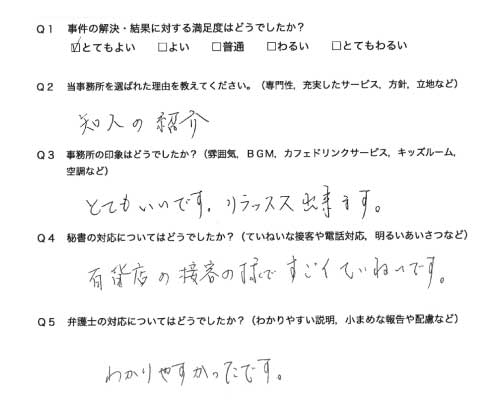 Q1 事件の解決・結果に対する満足度はどうでしたか?
☑とてもよい □よい □普通 □わるい □とてもわるい
Q2 当事務所を選ばれた理由を教えてください。(専門性,充実したサービス,方針,立地など)
知人の紹介
Q3 事務所の印象はどうでしたか?(雰囲気,BGM,カフェドリンクサービス,キッズルーム,
空調など)
とてもいいです。リラックス出来ます。
Q4 秘書の対応についてはどうでしたか?(ていねいな接客や電話対応,明るいあいさつなど)
百貨店の接客の様ですごくていねいです。
Q5 弁護士の対応についてはどうでしたか?(わかりやすい説明,小まめな報告や配慮など)
わかりやすかったです。